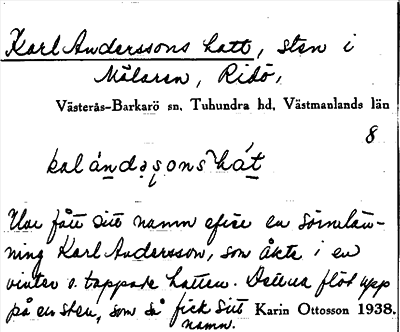 Karl Anderssons hatt, sten i
Mälaren, Ridö,
Västerås-Barkarö sn, Tuhundra hd, Västmanlands län
8
Har fått sitt namn efter en sörmlän-
ning Karl Andersson, som åkte i en
vinter o. tappade hatten. Denna flöt upp
på en sten, som så fick sitt Karin Ottosson 1938.
namn.